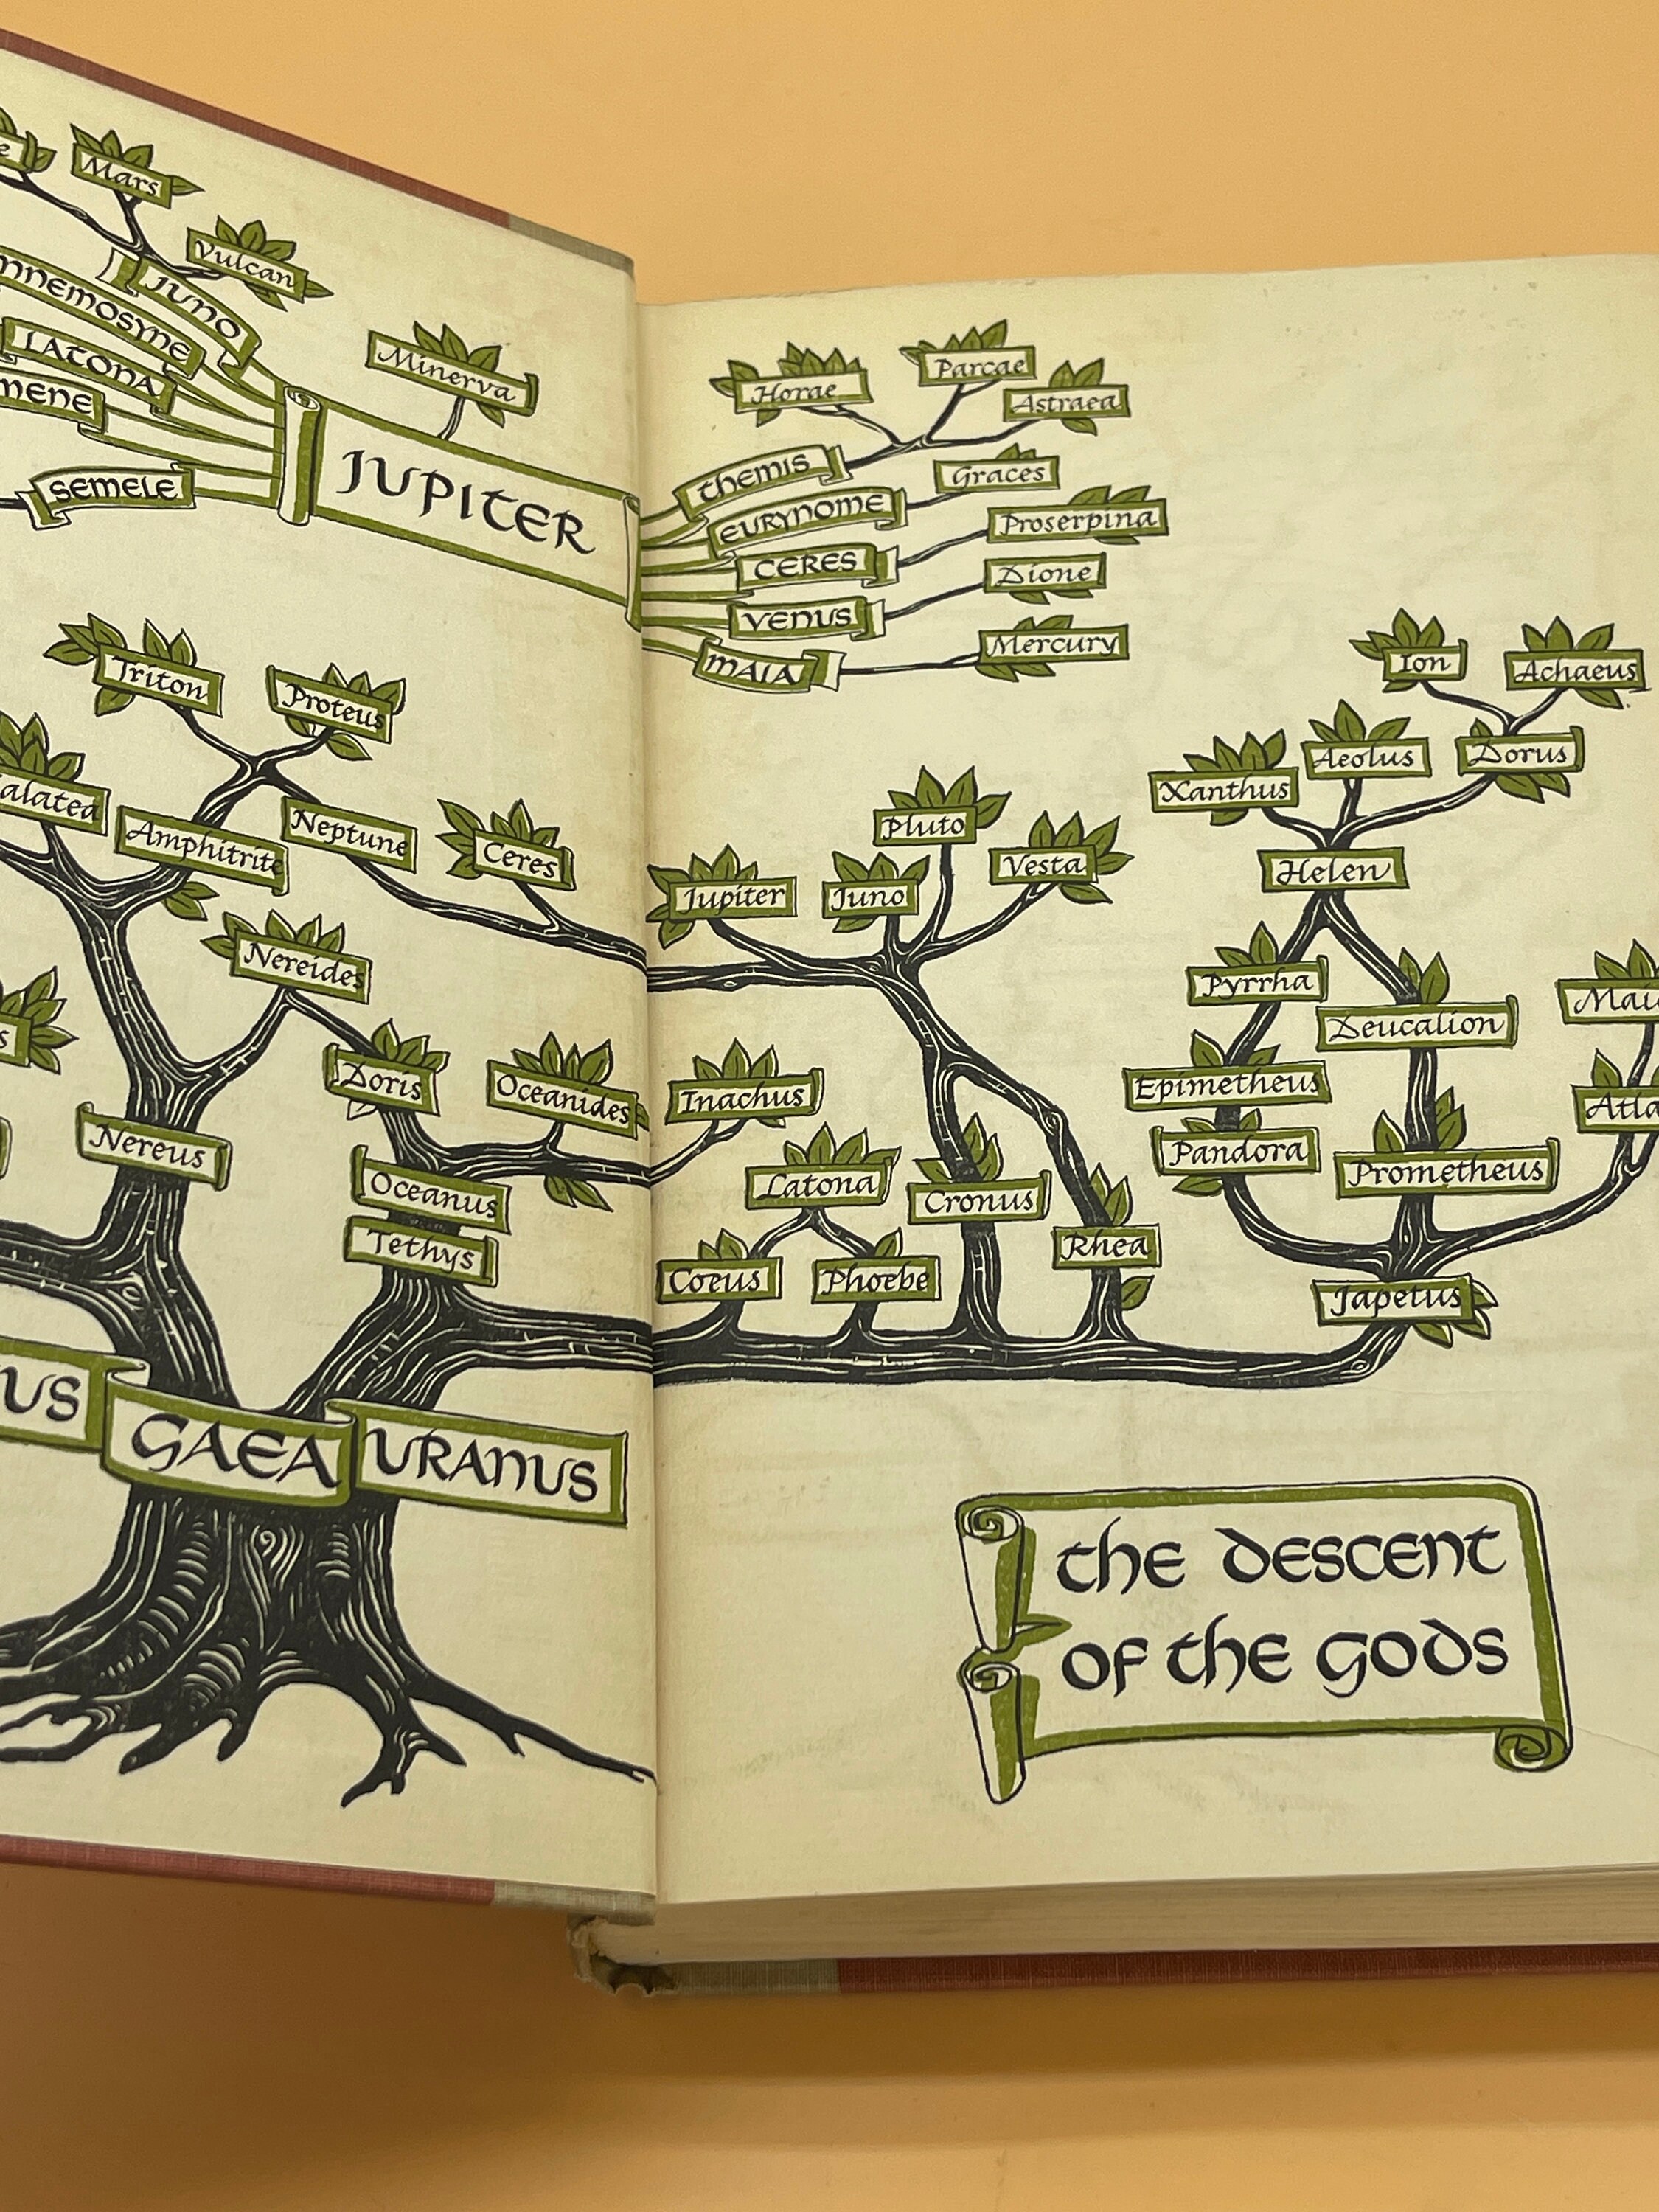 Mars
Vulcan
JUNO
MNEMOSYNE
LATONA
SEMELE
Minerva
JUPITER
Horae
Parcae
Astraea
THEMIS
Graces
EURYNOME
Proserpina
CERES
Dione
VENUS
Mercury
MAIA
Triton
Proteus
alatea
Amphitrite
Neptune
Ceres
Nereides
Doris
Oceanides
Nereus
Oceanus
Tethys
US
GAEA
URANUS
Jupiter
Juno
Pluto
Vesta
Inachus
Latona
Cronus
Coeus
Phoebe
Rhea
Ion
Achaeus
Xanthus
Aeolus
Dorus
Helen
Pyrrha
Deucalion
Epimetheus
Pandora
Prometheus
Mai
Atla
Japetus
the descent
of the gods